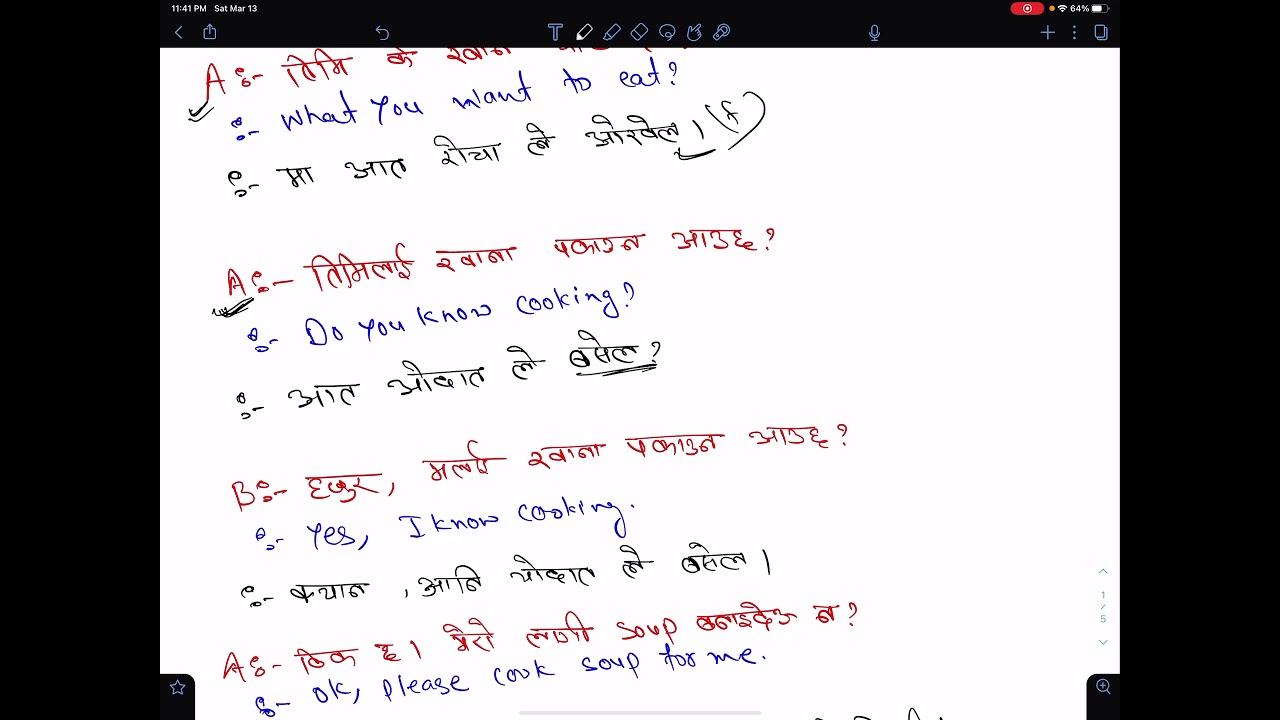 11:41 PM Sat Mar 13
64%
A:- तिमि के खान
:- What you want to eat?
:- मा आत रोचा ले ओखेल। (f)
A:- तिमिलाई खाना पकाउन आउछ?
:- Do you know cooking?
:- आत ओदात ले बसेल?
B:- हजुर, मलाई खाना पकाउन आउछ?
:- Yes, I know cooking.
:- क्यान, आनि योदात ले बसेल।
A:- ठिक छ। मेरो लागी soup बनाइदेऊ न?
:- ok, please cook soup for me.
1/5